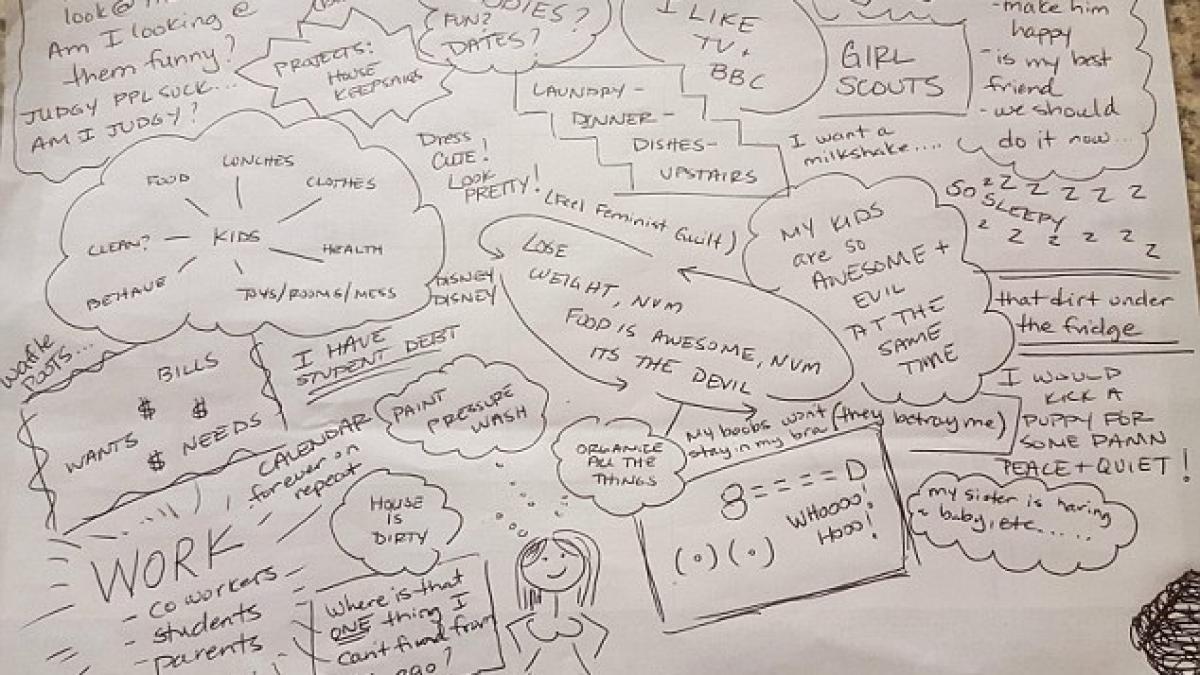 look@
Am I looking @
them funny?
JUDGY PPL SUCK...
AM I JUDGY?
PROJECTS:
HOUSE
KEEPSAKES
FUN?
DATES?
I LIKE
TV +
BBC
GIRL
SCOUTS
-make him
happy
-is my best
friend
-we should
do it now...
LAUNDRY-
DINNER-
DISHES-
UPSTAIRS
I want a
milkshake....
KIDS
LUNCHES
CLOTHES
HEALTH
TOYS/ROOMS/MESS
BEHAVE
CLEAN?
FOOD
Dress
CUTE!
LOOK
PRETTY!
(Feel Feminist Guilt)
DISNEY
DISNEY
LOSE
WEIGHT, NVM
FOOD IS AWESOME, NVM
ITS THE DEVIL
MY KIDS
are so
AWESOME +
EVIL
AT THE
SAME
TIME
SO z Z Z Z Z Z
SLEEPY
z Z Z Z Z Z
that dirt under
the fridge
waffle
BILLS
$ $
WANTS $ NEEDS
I HAVE
STUDENT DEBT
CALENDAR
forever on
repeat
PAINT
PRESSURE
WASH
ORGANIZE
ALL THE
THINGS
My boobs wont (they betray me)
stay in my bra
I WOULD
KICK A
PUPPY FOR
SOME DAMN
PEACE + QUIET!
HOUSE
IS
DIRTY
8====D
WHOOOO!
HOOO!
(o)(o)
my sister is having
a baby, etc.....
WORK
- coworkers
- students
- parents
Where is that
ONE thing I
can't find from
ago?